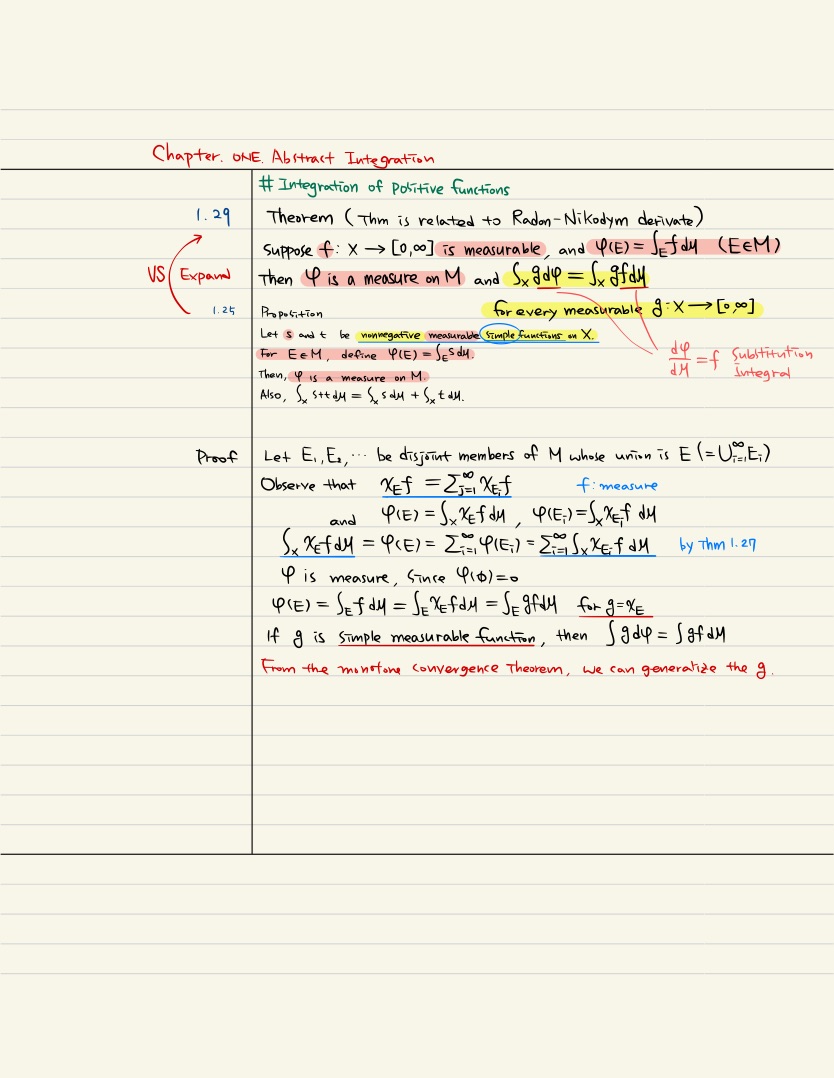 Chapter. ONE. Abstract Integration
# Integration of positive functions
1.29 Theorem (Thm is related to Radon-Nikodym derivate)
Suppose f: X → [0,∞] is measurable, and φ(E) = ∫_E f dμ (E∈M)
VS Expand Then φ is a measure on M and ∫_X g dφ = ∫_X g f dμ
1.25 Proposition for every measurable g: X → [0,∞]
Let s and t be nonnegative measurable simple functions on X.
For E∈M, define φ(E) = ∫_E s dμ.
Then, φ is a measure on M.
Also, ∫_X s+t dμ = ∫_X s dμ + ∫_X t dμ.
dφ/dμ = f Substitution
Integral
Proof Let E₁, E₂, ⋯ be disjoint members of M whose union is E (= ∪_{i=1}^∞ E_i)
Observe that χ_E f = Σ_{j=1}^∞ χ_{E_j} f f: measure
and φ(E) = ∫_X χ_E f dμ, φ(E_i) = ∫_X χ_{E_j} f dμ
∫_X χ_E f dμ = φ(E) = Σ_{i=1}^∞ φ(E_i) = Σ_{i=1}^∞ ∫_X χ_{E_i} f dμ by Thm 1.27
φ is measure, since φ(ϕ)=0
φ(E) = ∫_E f dμ = ∫_E χ_E f dμ = ∫_E g f dμ for g=χ_E
If g is simple measurable function, then ∫ g dφ = ∫ g f dμ
From the monotone convergence Theorem, we can generatize the g.